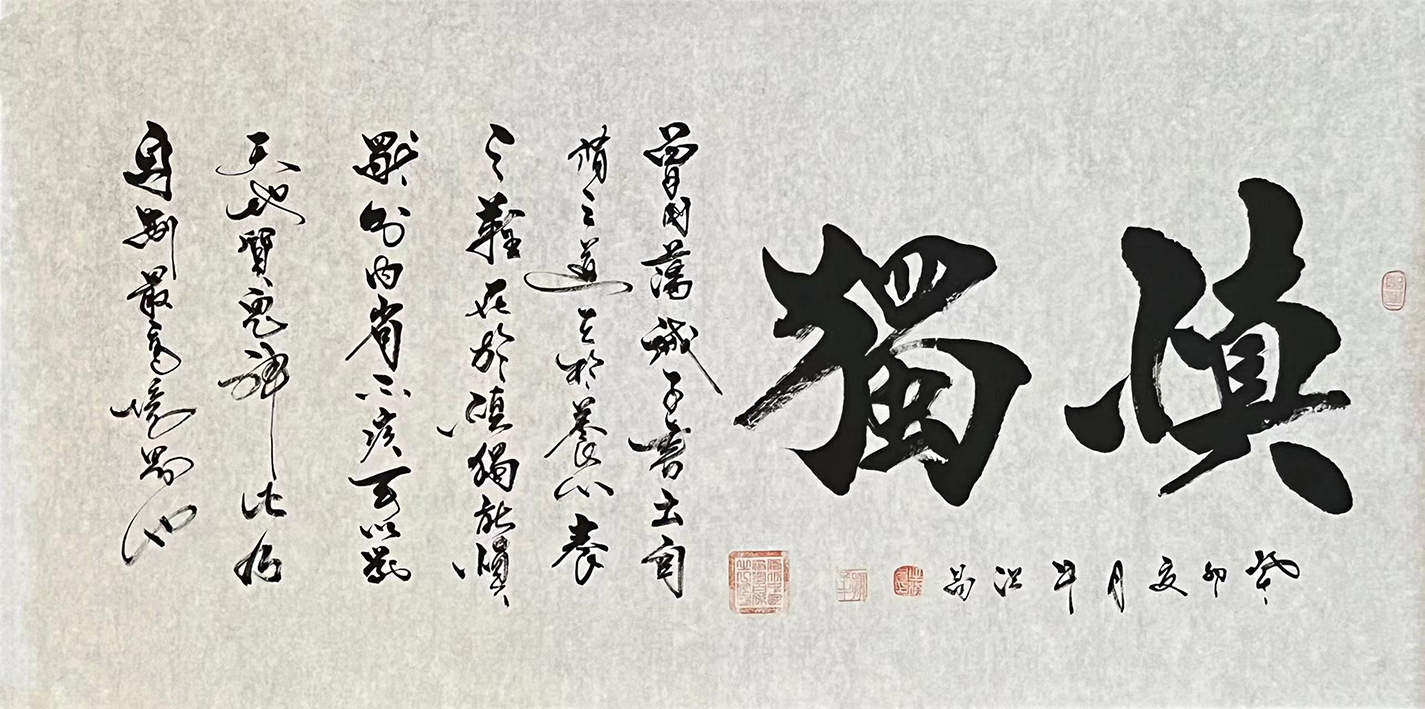 慎獨
癸卯亥月牛江昜
曾國藩誡子書云自
脩之道莫於養心養
之難在於慎獨能慎
獨則內省不疚可以對
天地質鬼神此為
自制最高境界也